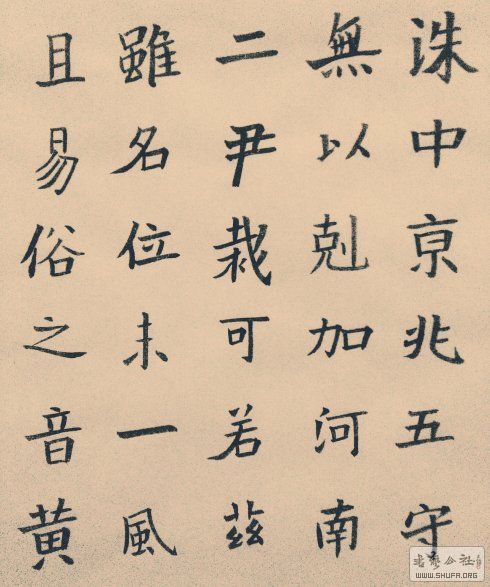 洙中亰兆五守
無以剋加河南
二尹裁可若茲
雖名位未一風
且易俗之音黄
WWW.SHUFA.ORG